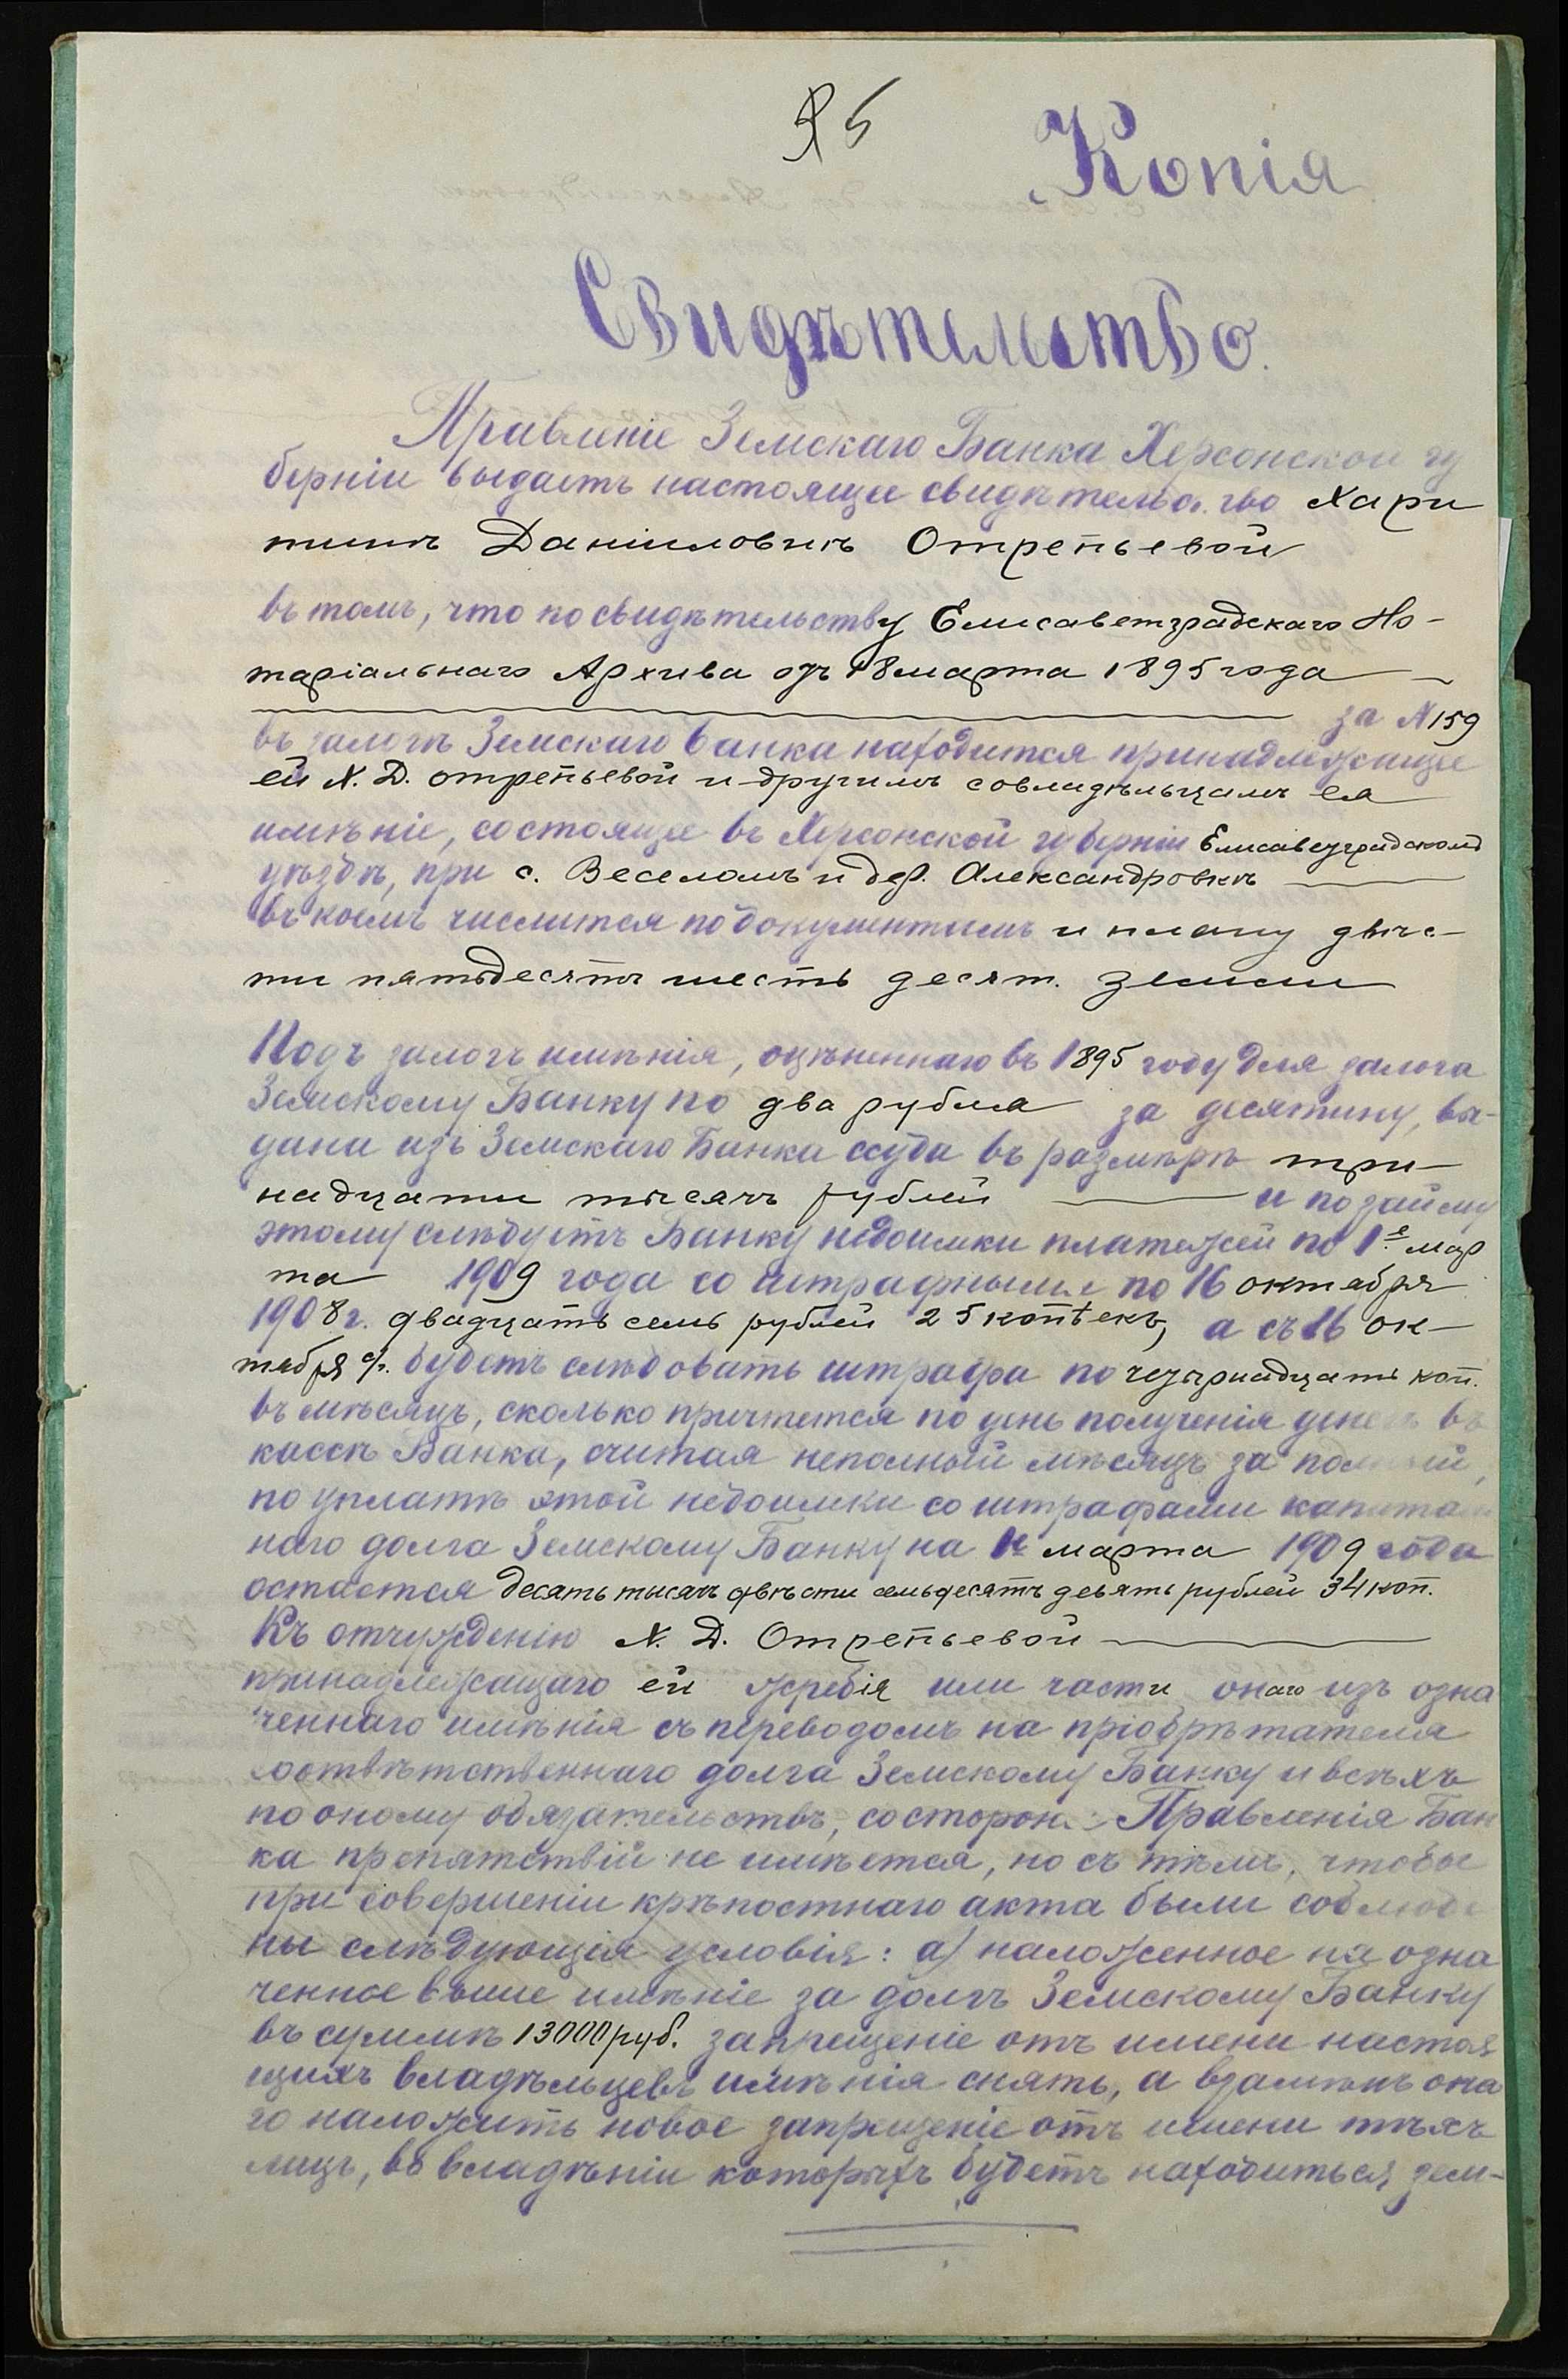 95
Копія
Свидѣтельство.
Правленіе Земскаго Банка Херсонской гу
берніи выдаетъ настоящее свидѣтельство Хари
тинѣ Даніиловнѣ Отрепьевой
въ томъ, что по свидѣтельству Елисаветградскаго Но-
таріальнаго Архива отъ 18 марта 1895 года
за № 159
въ залогѣ Земскаго банка находится принадлежащее
ей Х. Д. Отрепьевой и другимъ совладѣльцамъ ея
имѣніе, состоящее въ Херсонской губерніи Елисаветградскомъ
уѣздѣ, при с. Веселомъ и дер. Александровкѣ
въ коемъ числится по документамъ и плану двѣс-
ти пятьдесятъ шесть десят. земли
Подъ залогъ имѣнія, оцѣненнаго въ 1895 году для залога
Земскому Банку по два рубля за десятину, вы-
дана изъ Земскаго Банка ссуда въ размѣрѣ три-
надцати тысячъ рублей и по займу
этому слѣдуетъ Банку недоимки платежей по 1е мар
та 1909 года со штрафными по 16 октября
1908 г. двадцать семь рублей 25 копѣекъ, а съ 16 ок-
тября с/г. будетъ слѣдовать штрафа по четырнадцать коп.
въ мѣсяцъ, сколько причтется по день полученія денегъ въ
кассѣ Банка, считая неполный мѣсяцъ за полный,
по уплатѣ этой недоимки со штрафами капиталь
наго долга Земскому Банку на 1е марта 1909 года
остается десять тысячъ двѣсти семьдесятъ девять рублей 34 коп.
Къ отчужденію Х. Д. Отрепьевой
принадлежащаго ей жребія или части онаго изъ озна
ченнаго имѣнія съ переводомъ на пріобрѣтателя
соотвѣтственнаго долга Земскому Банку и всѣхъ
по оному обязательствъ, со стороны Правленія Бан
ка препятствій не имѣется, но съ тѣмъ, чтобы
при совершеніи крѣпостнаго акта были соблюде
ны слѣдующія условія: а) наложенное на озна
ченное выше имѣніе за долгъ Земскому Банку
въ суммѣ 13000 руб. запрещеніе отъ имени настоя
щихъ владѣльцевъ имѣнія снять, а взамѣнъ она
го наложить новое запрещеніе отъ имени тѣхъ
лицъ, во владѣніи которыхъ будетъ находиться зем-